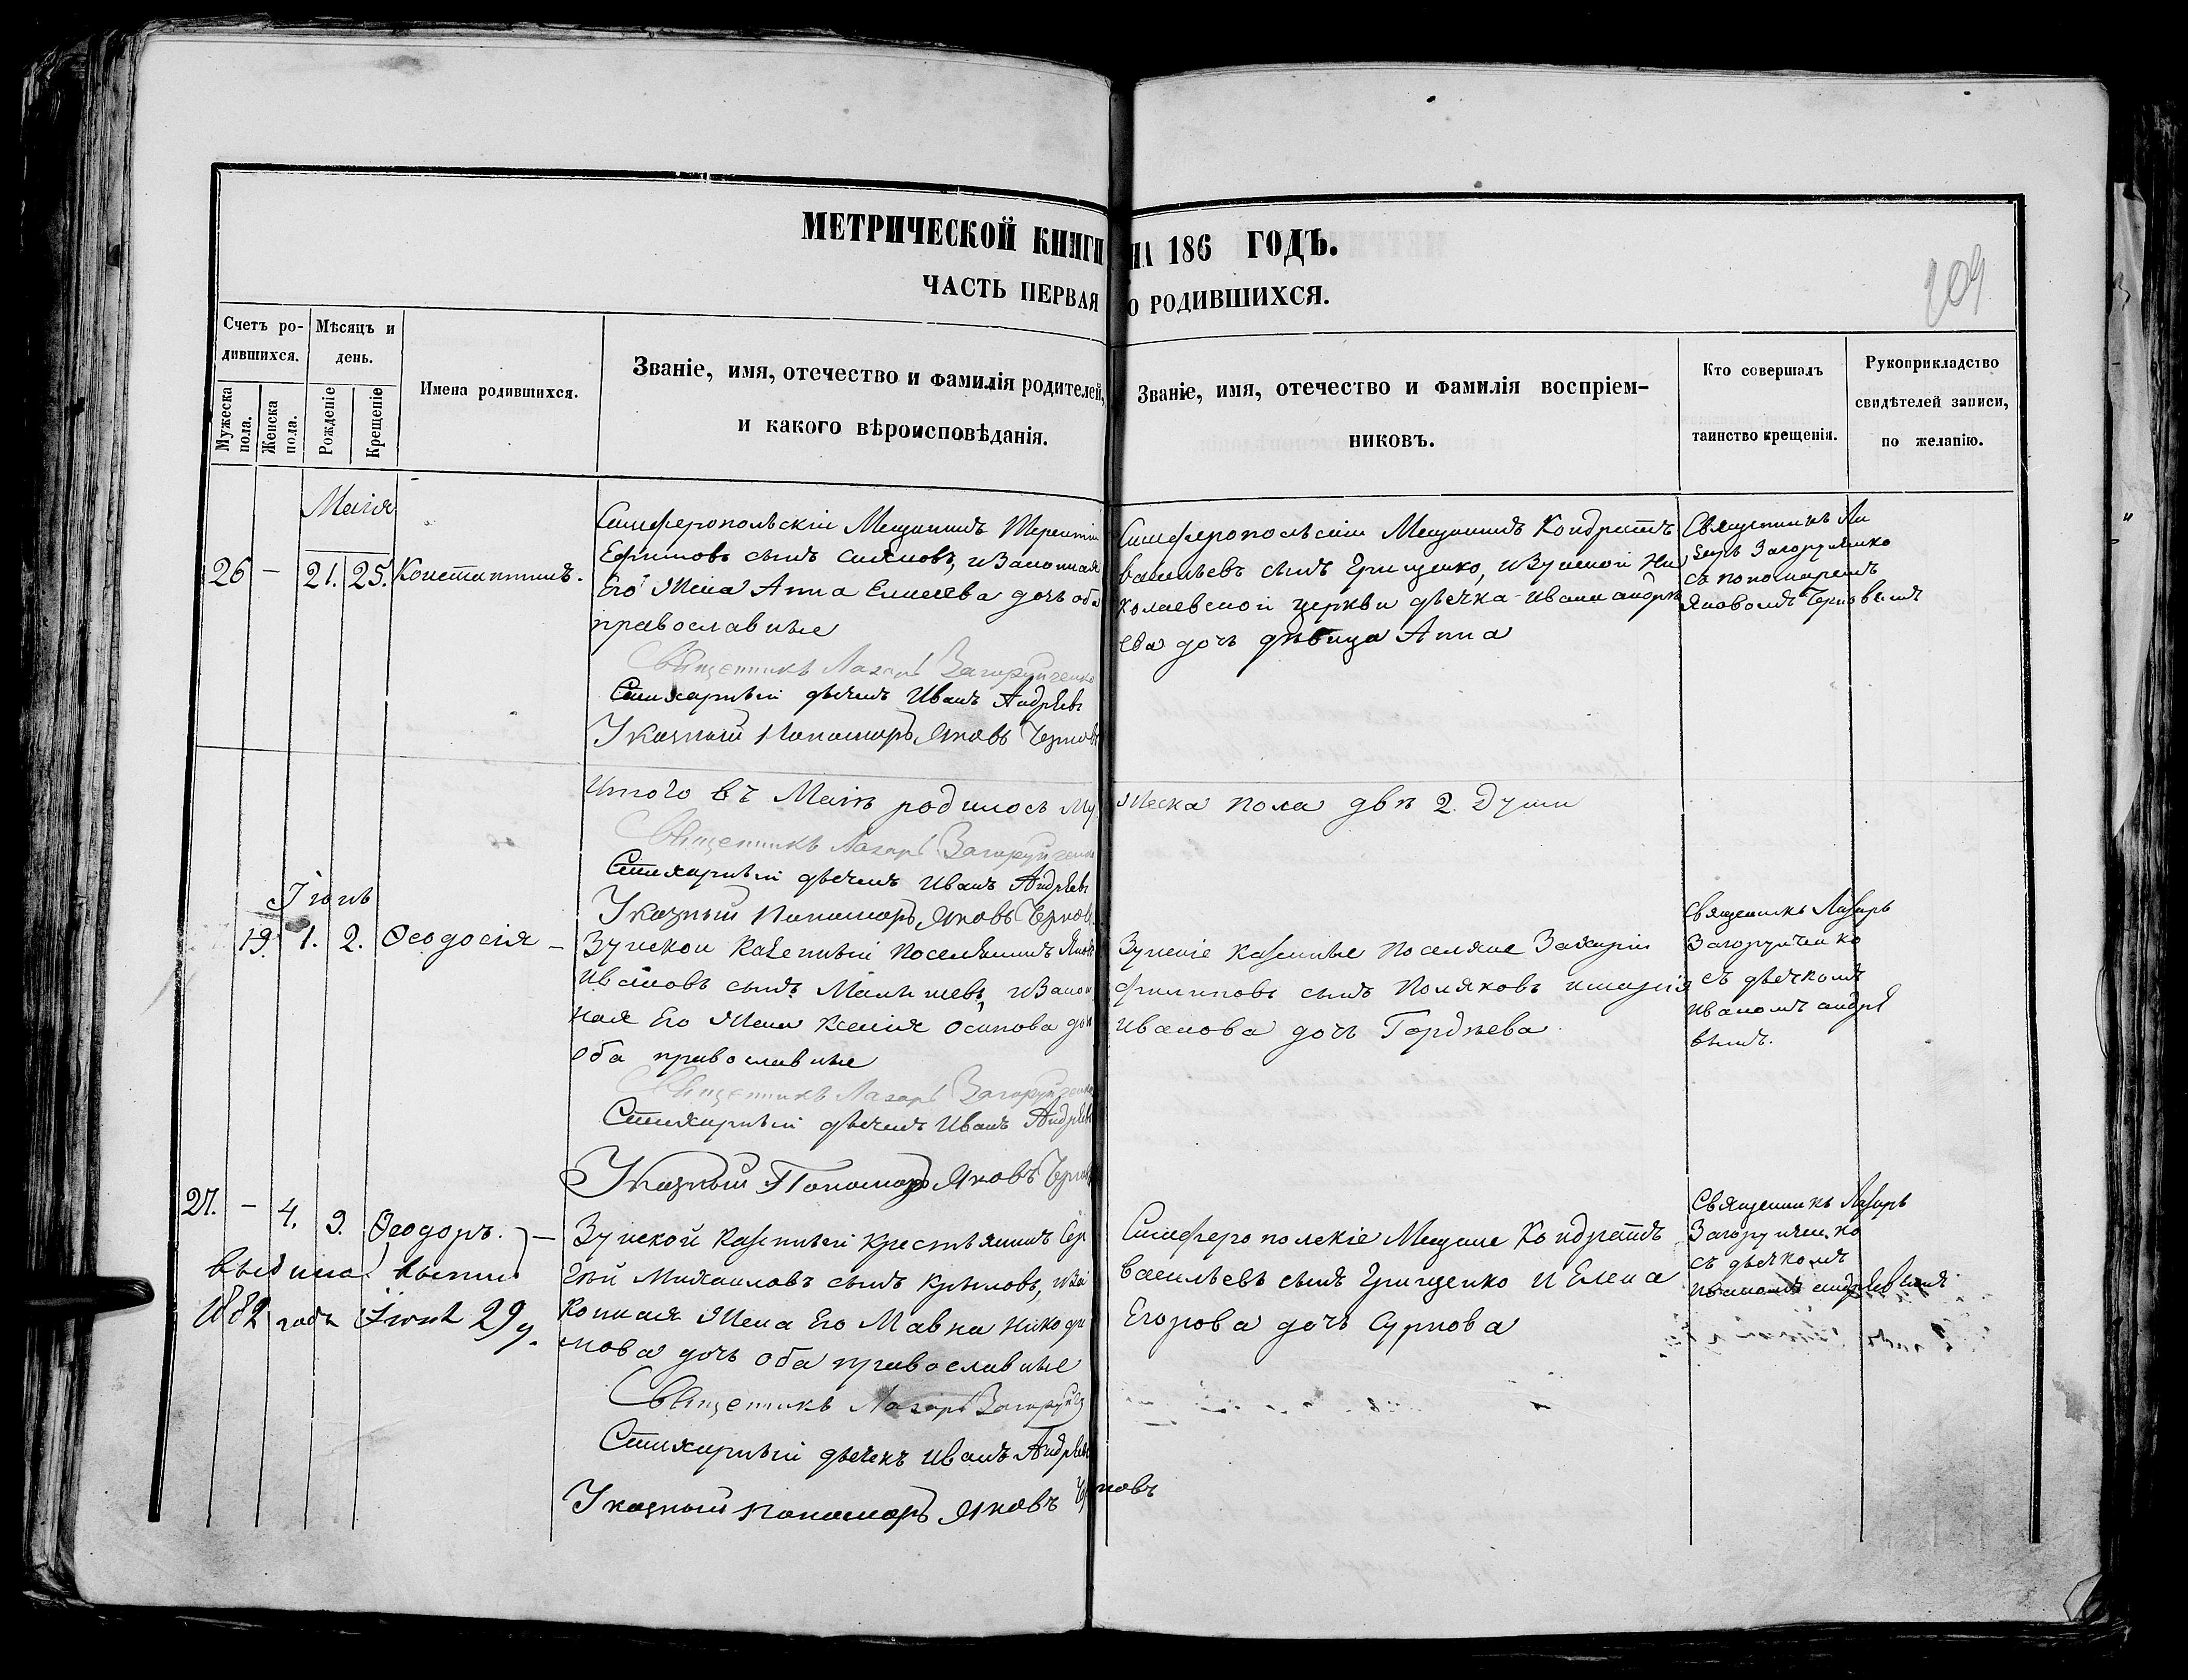 МЕТРИЧЕСКОЙ КНИГИ НА 186 ГОДЪ.
ЧАСТЬ ПЕРВАЯ О РОДИВШИХСЯ.
209
Счетъ ро-
дившихся.
Мужеска пола.
Женска пола.
Мѣсяцъ и
день.
Рожденіе
Крещеніе
Имена родившихся.
Званіе, имя, отечество и фамилія родителей,
и какого вѣроисповѣданія.
Званіе, имя, отечество и фамилія воспріем-
никовъ.
Кто совершалъ
таинство крещенія.
Рукоприкладство
свидѣтелей записи,
по желанію.
Маія
26 — 21. 25. Константинъ.
Симферопольскій Мещанинъ Терентій
Ефимовъ сынъ законная
Его Жена Анна Елисеева дочь оба
православные
Симферопольскій Мещанинъ Кондратъ
Васильевъ сынъ Грищенко, и Зуйской Ни
колаевской церкви дьячка Ивана Андрѣ
ева дочь дѣвица Анна
Священникъ Ла
зарь Загоруйченко
съ пономаремъ
Яковомъ Черновымъ
Священникъ Лазарь Загоруйченко
Стихарный дьячекъ Иванъ Андрѣевъ
Указный Пономарь Яковъ Чернов
Итого въ Маіѣ родилось Му
жеска пола двѣ 2 Души
Священникъ Лазарь Загоруйченко
Стихарный дьячекъ Иванъ Андрѣевъ
Указный Пономарь Яковъ Чернов
Іюнь
19. 1. 2. Ѳеодосія —
Зуйской Казенный Поселянинъ Яков
Ивановъ сынъ Малышевъ, и Закон
ная Его Жена Ксенія Осипова доч
оба православные
Зуйскіе Казенные Поселяне Захарій
Филиповъ сынъ Поляковъ и Марія
Иванова дочь Гордѣева
Священникъ Лазарь
Загоруйченко
съ дьячкомъ
Иваномъ Андрѣ
вымъ.
Священникъ Лазарь Загоруйченко
Стихарный дьячекъ Иванъ Андрѣев
Указный Пономарь Яковъ Чернов
27. — 4. 9. Ѳеодоръ. —
Выдана выпись
1882 годъ Іюня 29 д.
Зуйской Казенный Крестьянинъ Сер
гѣй Михаиловъ сынъ Крыловъ, и За
конная Жена Его Мавна Никоди
мова дочь оба православные
Симферополскіе Мещане Кондратъ
Васильевъ сынъ Грищенко и Елена
Егорова дочь Сурнова
Священникъ Лазарь
Загоруйченко
съ дьячкомъ
Иваномъ Андрѣевымъ
Священникъ Лазарь Загоруйч
Стихарный дьячекъ Иванъ Андрѣевъ
Указный Пономарь Яковъ Черновъ